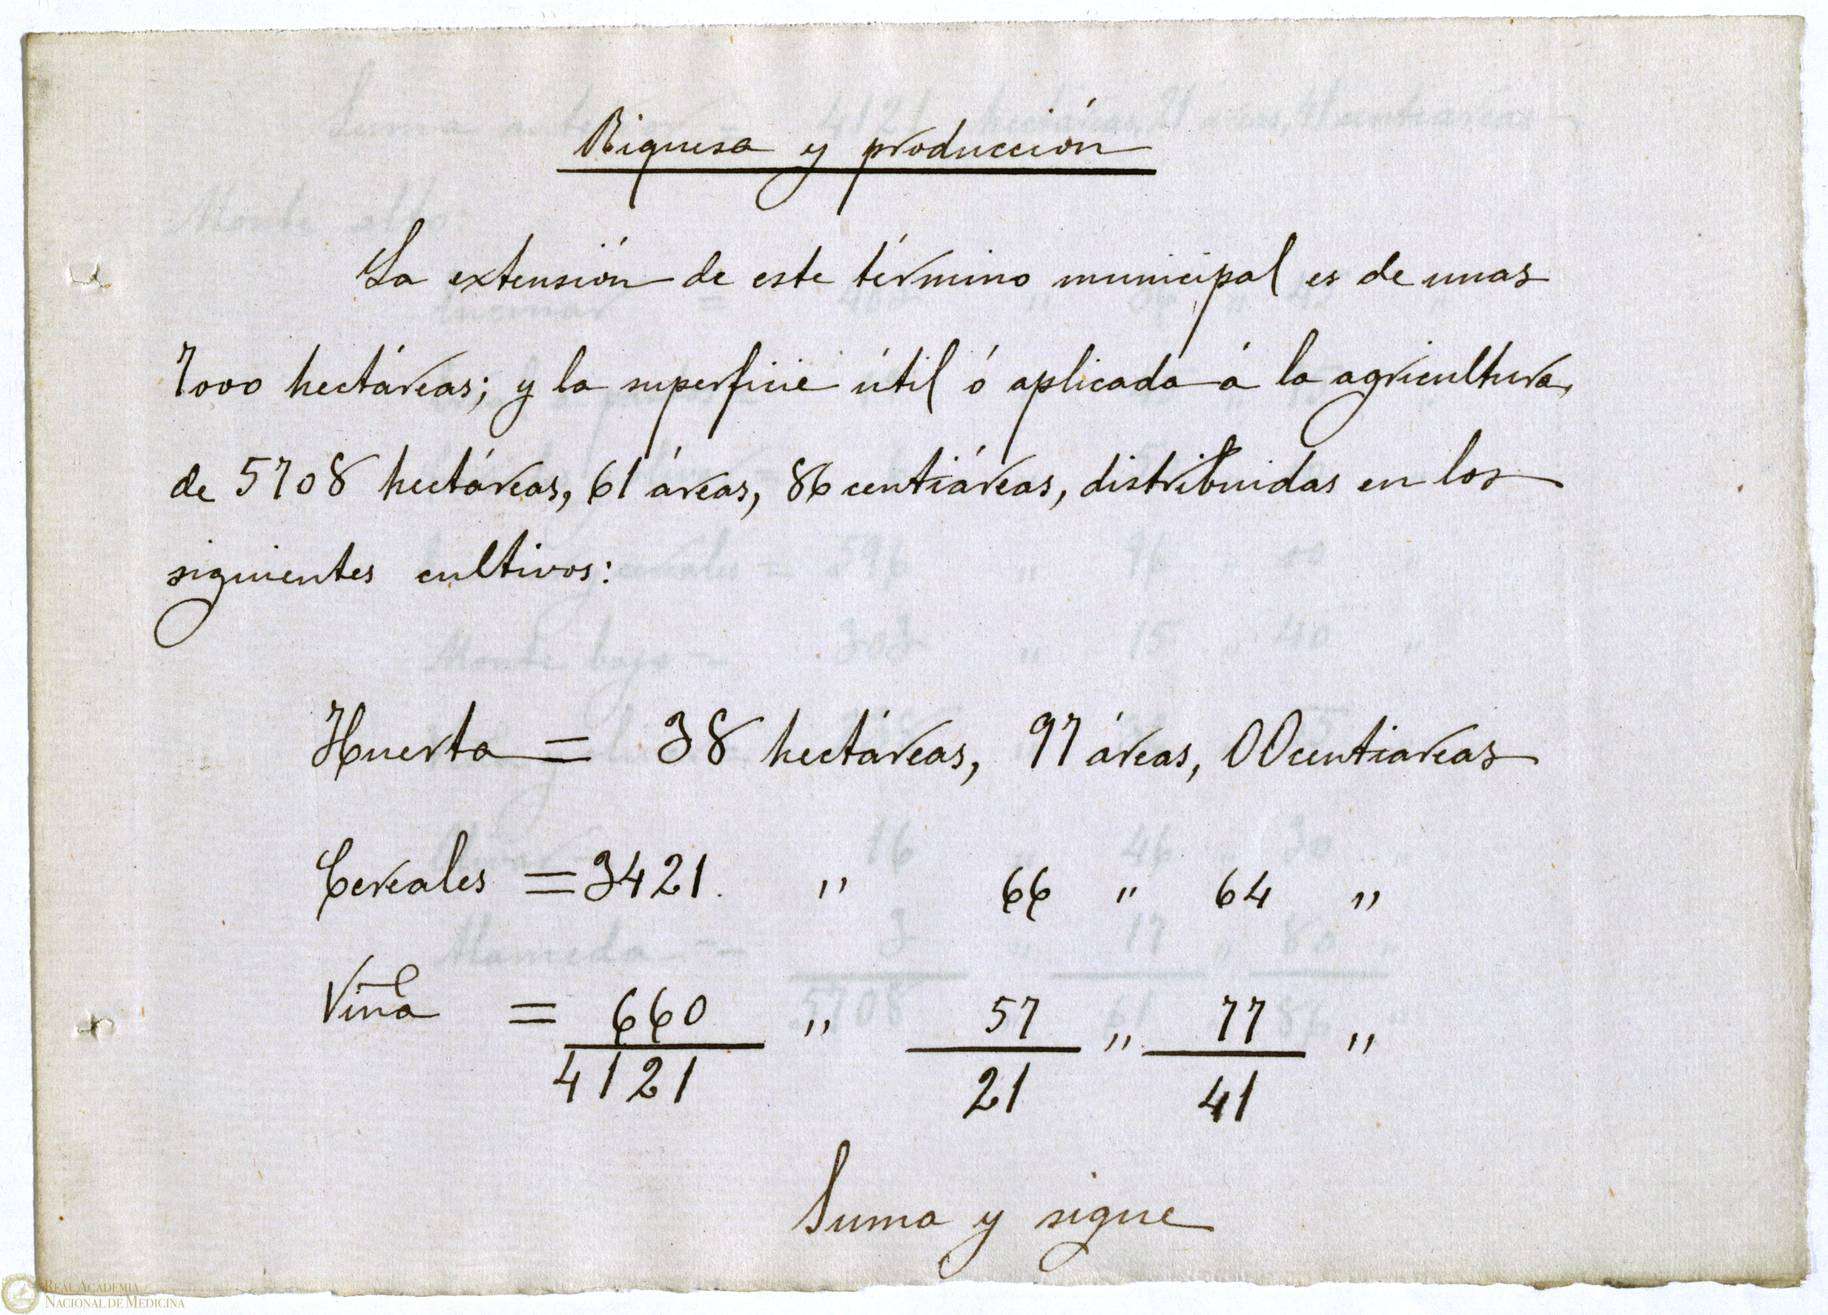 Riquesa y producción
La extensión de este término municipal es de unas
7000 hectáreas; y la superficie útil ó aplicada á la agricultura,
de 5708 hectáreas, 61 áreas, 86 centiáreas, distribuidas en los
siguientes cultivos:
Huerta = 38 hectáreas, 97 áreas, 00 centiareas
Cereales = 3421. " 66 " 64 "
Viña = 660 " 57 " 77 "
4121 21 41
Suma y sigue
REAL ACADEMIA
NACIONAL DE MEDICINA